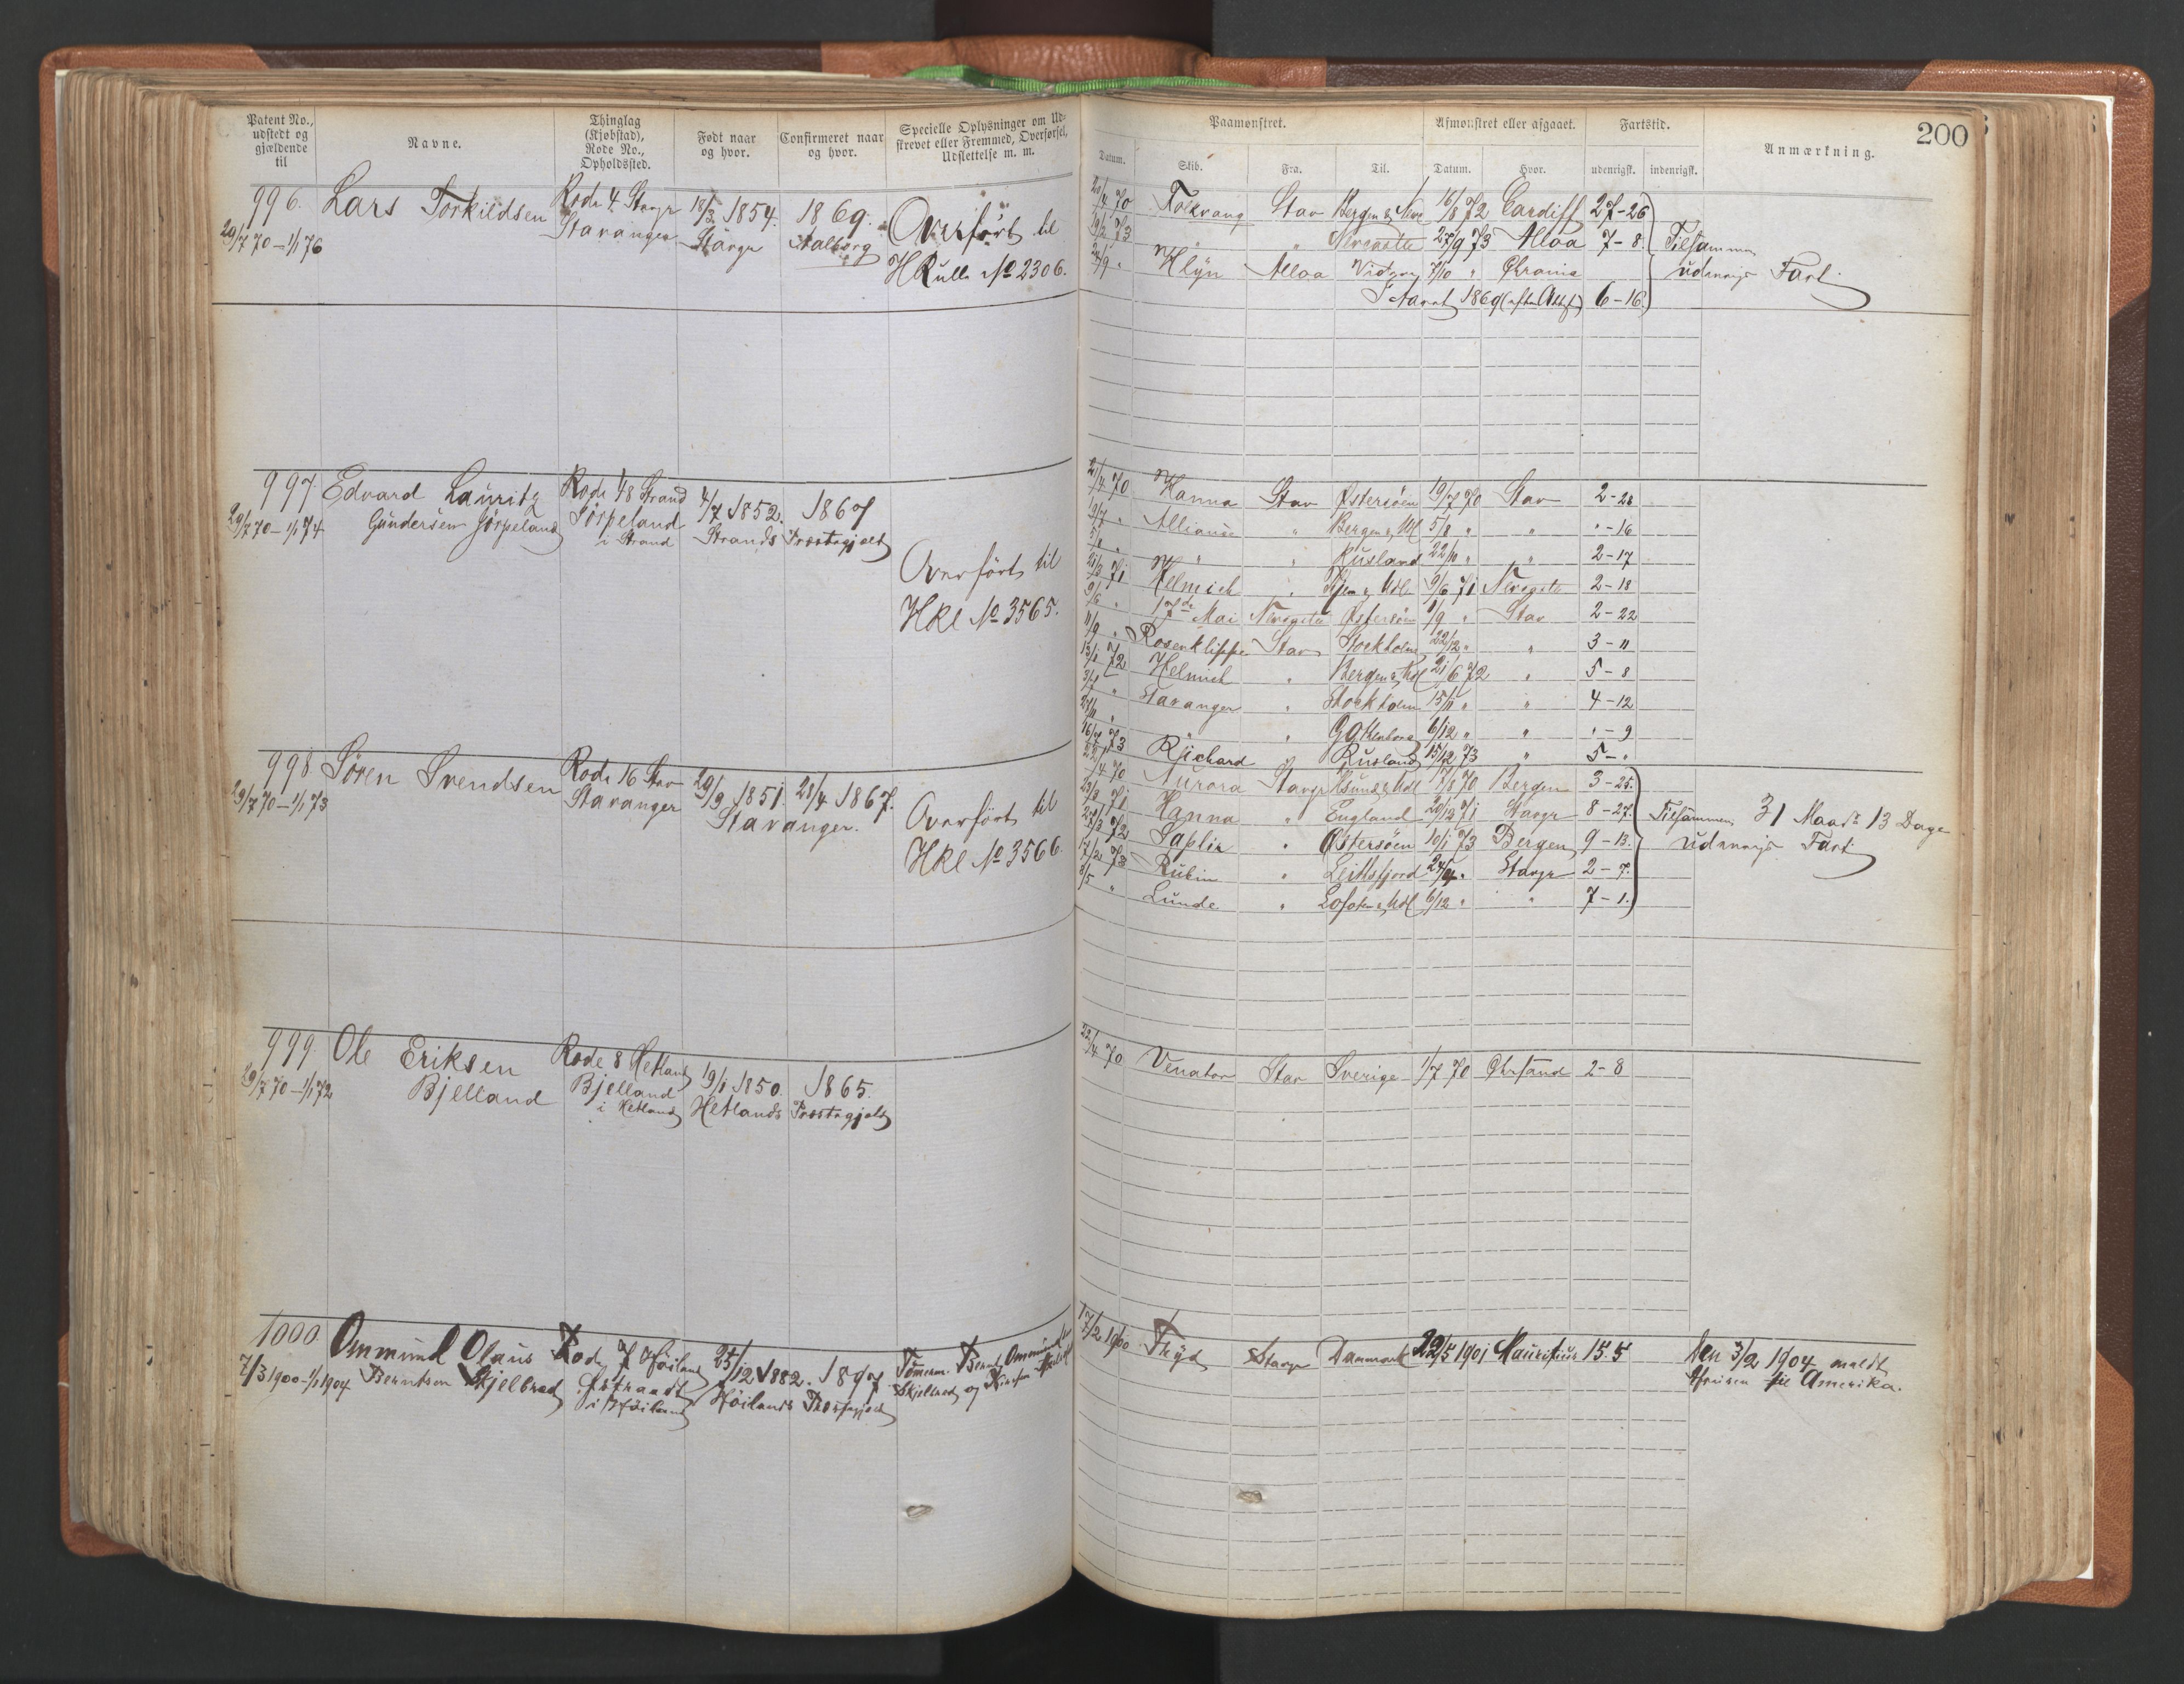 Patent No., udstedt og gjældende til
Navne.
Thinglag (Kjøbstad), Rode No., Opholdssted.
Født naar og hvor.
Confirmeret naar og hvor.
Specielle Oplysninger om Udstrevet eller Fremmed, Overførsel, Udslettelse m. m.
996. Lars Torkildsen Rode 4. Stavgr 18/3 1854. 1869. Overført til
29/7 70 – 1/1 76 Stavanger Stavgr Aalborg
HRulle No 2306.
997. Edvard Lauritz Rode 48 Strand 4/7 1852. 1867
29/7 70 – 1/1 74 Gundersen Jørpeland Jørpeland Strands Præstegjeld
i Strand
Overført til
HRl No 3565.
998. Sören Svendsen Rode 16 Stav 29/9 1851. 28/4 1867.
29/7 70 – 1/1 73 Stavanger Stavanger.
Overført til
HRl No 3566.
999. Ole Eriksen Rode 8 Hetland 19/1 1850. 1865.
29/7 70 – 1/1 72 Bjelland Bjelland Hetlands Præstegjeld
i Hetland
1000 Ommund Olaus Rode 7 Höiland 25/12 1882. 1897 Tömerm. Bernt Ommundsen
7/3 1900 – 1/1 1904 Berntsen Skjelbred i Höiland Höilands Præstegjeld Skjelbred og
200
Paamønstret.
Afmønstret eller afgaaet.
Fartstid.
Anmærkning.
Datum.
Skib.
Fra.
Til.
Datum.
Hvor.
udenrigsk.
indenrigsk.
20/4 70 Folkvang Stav 16/8 72 Cardiff 27–26
19/2 73 " " Newcastle 27/9 73 Alloa 7–8. Tilsammen
29/9 " Klyn Alloa 7/10 " Chrania udenrigs Fart
I Aaret 1869 (efter Attest) 6–16.
21/4 70 Hanna Stav Østersöen 19/7 70 Stav 2–28
19/7 " Alliance " Bergen & Udl 5/8 " " "–16
5/8 " " " Rusland 22/10 " " 2–17
21/3 71 Helmich " 9/6 71 Newcastle 2–18
9/6 " 17de Mai Newcastle Østersöen 1/9 " Stav 2–22
11/9 " Rosenklippe Stav Stockholm 22/12 " " 3–11
13/1 72 Helmich " Bergen & Udl 21/6 72 " 5–8
3/7 " Stavanger " Stockholm 15/11 " " 4–12
27/11 " " Gottenborg 6/12 " " "–9
16/7 73 Richard " Rusland 15/12 73 " 5–"
22/4 70 Aurora Stavgr 17/8 70 Bergen 3–25.
23/3 71 Hanna " England 20/12 71 Stavgr 8–27. Tilsammen 31 Maadr 13 Dage
27/3 72 Saplin " Østersöen 10/1 73 Bergen 9–13. udenrigs Fart
17/2 73 Rubin " 24/4 " Stavgr 2–7.
5/5 " Lunde " Lofoten & Udl 6/12 " " 7–1.
22/4 70 Venator Stav Sverige 1/7 70 Chrsand 2–8
17/2 1900 Fryd Stavgr Danmark 22/5 1901 Mauritius 15.5 Den 3/2 1904 meldt
Afreisen til Amerika.